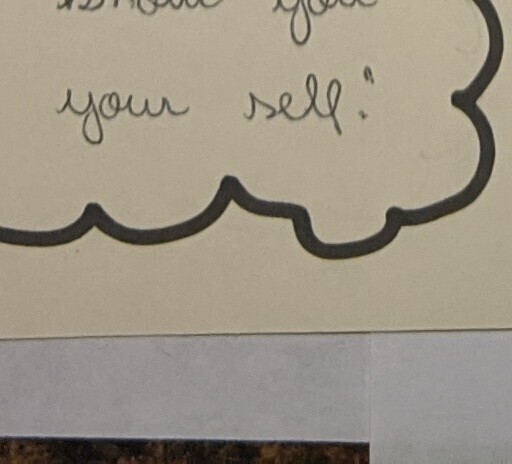 you
your self."